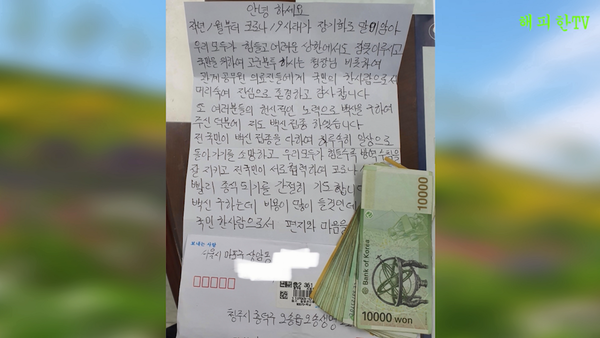 안녕 하세요
작년 1월부터 코로나 19사태가 장기화로 말미암아
우리모두가 힘들고 어려운 상황에서도 잘못이루시고
국민을 위하여 고군분투 하시는 청장님 비롯하여
관계 공무원 의료진들에게 국민이 한사람으로서
머리숙여 진심으로 존경하고 감사 합니다
또 여러분들의 헌신적인 노력으로 백신을 구하여
주신 덕분에 저도 백신 접종 하였습니다
전 국민이 백신 접종을 다하여 하루속히 일상으로
돌아가기를 소망하고 우리모두가 힘들수록 방역 수칙을
잘 지키고 전국민이 서로 협력하여 코로나
빨리 종식 되기를 간절히 기도 합니다
백신 구하는데 비용이 많이 들것인데
국민 한사람으로서 편지와 마음을
보내는 사람
서울시 마포구 상암동
청주시 흥덕구 오송읍 오송생명
10000
Bank of Korea
10000 won
해피한TV